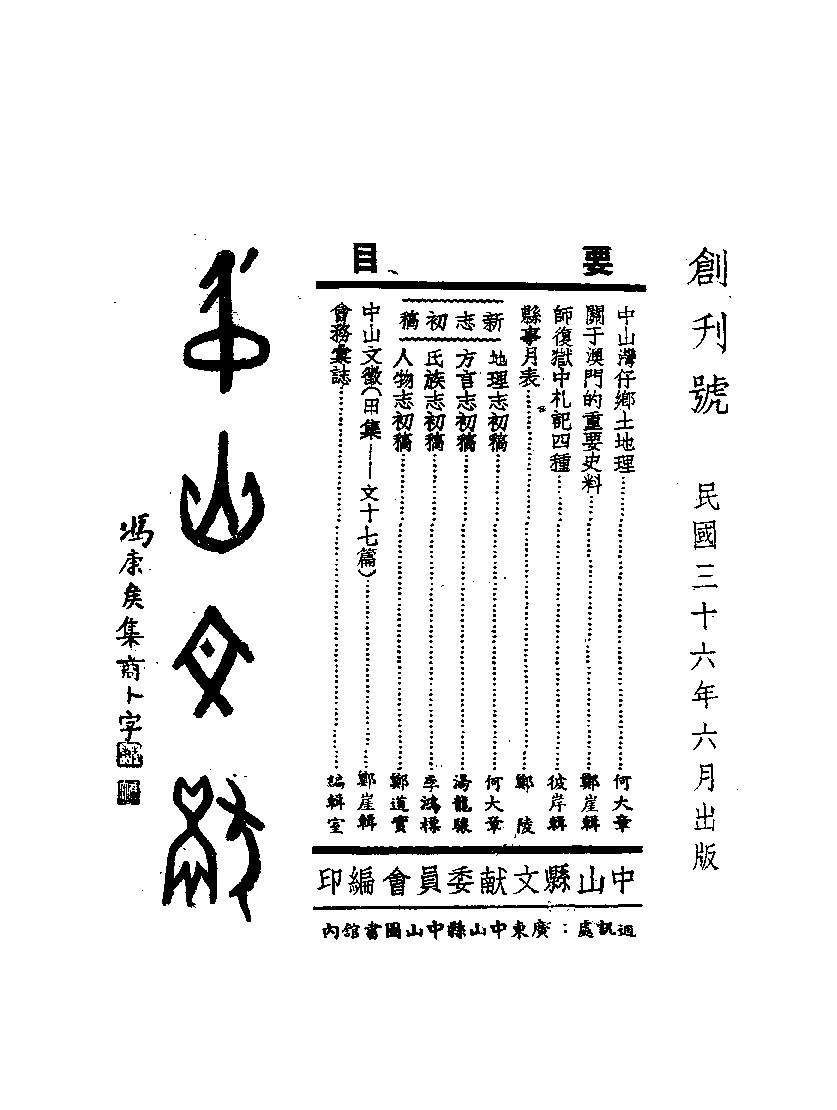 創刊號　民國三十六年六月出版
要目
中山灣仔鄉土地理……何大章
關于澳門的重要史料……鄭崖輯
師復獄中札記四種……彼岸輯
縣事月表……鄭陵
新志初稿
地理志初稿……何大章
方言志初稿……湯龍驤
氏族志初稿……李鴻標
人物志初稿……鄭道實
中山文徵(田集——文十七篇)……鄭崖輯
會務彙誌……編輯室
中山縣文献委員會編印
通訊處：廣東中山縣中山圖書館內
中山文獻
馮康矦集商卜字